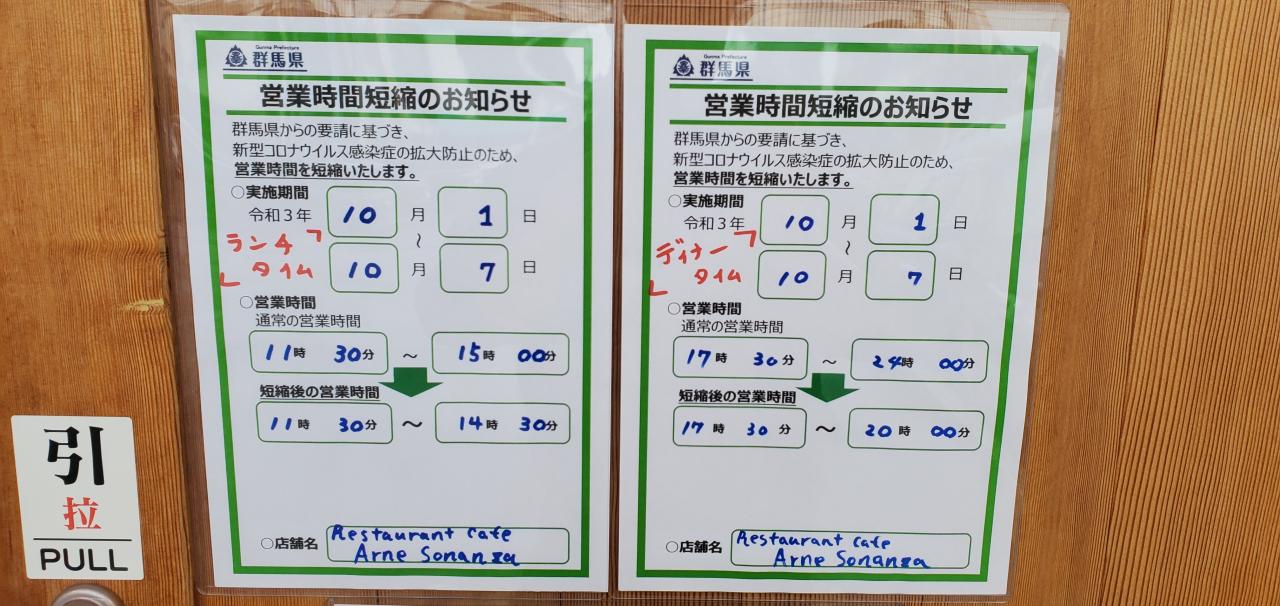 Gunma Prefecture
群馬県
営業時間短縮のお知らせ
群馬県からの要請に基づき、
新型コロナウイルス感染症の拡大防止のため、
営業時間を短縮いたします。
○実施期間
令和3年 10月 1日
～
「ランチタイム」
10月 7日
○営業時間
通常の営業時間
11時 30分 ～ 15時 00分
短縮後の営業時間
11時 30分 ～ 14時 30分
○店舗名 Restaurant Cafe
Arne Sonanza
Gunma Prefecture
群馬県
営業時間短縮のお知らせ
群馬県からの要請に基づき、
新型コロナウイルス感染症の拡大防止のため、
営業時間を短縮いたします。
○実施期間
令和3年 10月 1日
～
「ディナータイム」
10月 7日
○営業時間
通常の営業時間
17時 30分 ～ 24時 00分
短縮後の営業時間
17時 30分 ～ 20時 00分
○店舗名 Restaurant Cafe
Arne Sonanza
引
拉
PULL